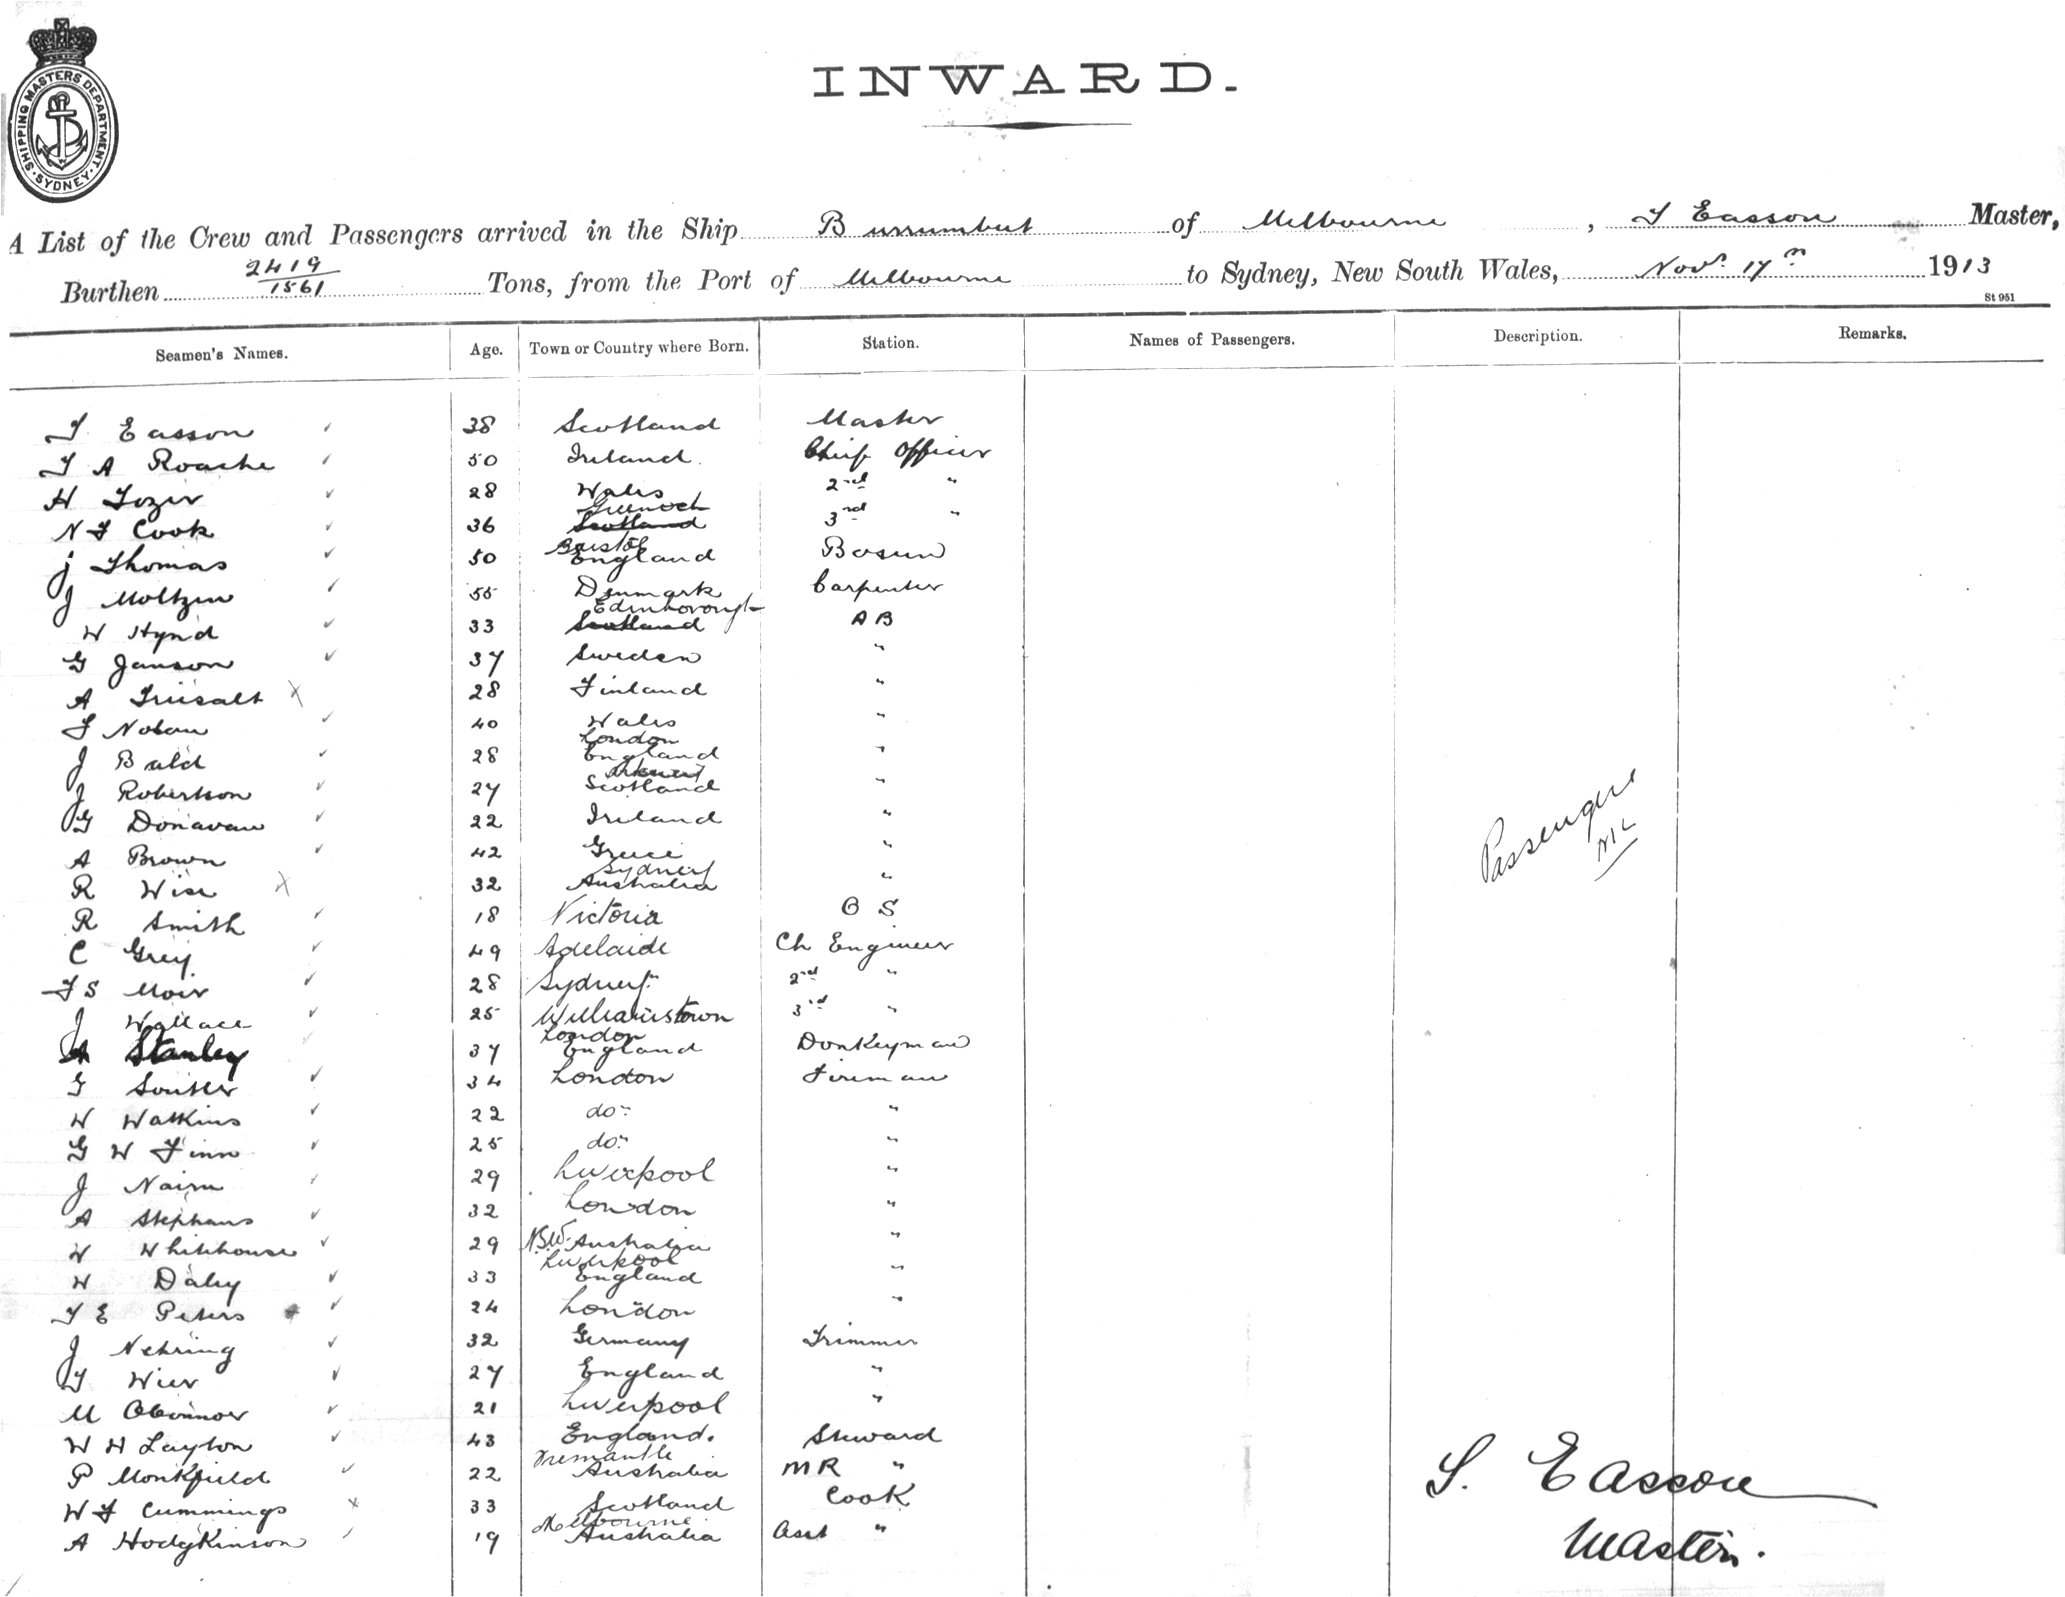 SHIPPING MASTERS DEPARTMENT · SYDNEY ·
INWARD.
A List of the Crew and Passengers arrived in the Ship Burrumbeet of Melbourne, T Easson Master,
Burthen 2419/1561 Tons, from the Port of Melbourne to Sydney, New South Wales, Novr. 17th 1913
St 951
Seamen's Names. Age. Town or Country where Born. Station. Names of Passengers. Description. Remarks.
T Easson ✓ 38 Scotland Master
T A Roache ✓ 50 Ireland. Chief Officer
H Tozer ✓ 28 Wales 2nd "
N F Cook ✓ 36 Greenock Scotland 3rd "
J Thomas ✓ 50 Bristol England Bosun
J Moltzen ✓ 55 Denmark Carpenter
W Hynd ✓ 33 Edinborough Scotland A B
G Janson ✓ 37 Sweden "
A X 28 Finland "
T Nolan ✓ 40 Wales "
J Bald ✓ 28 London England "
J Robertson ✓ 27 Scotland "
G Donavan ✓ 22 Ireland "
A Brown ✓ 42 Greece "
R Wise X 32 Sydney Australia "
R Smith ✓ 18 Victoria O S
C Grey ✓ 49 Adelaide Ch Engineer
T S Moir ✓ 28 Sydney 2nd "
J Wallace 25 Williamstown 3rd "
A Stanley 37 London England Donkeyman
G Souter ✓ 34 London Fireman
W Watkins ✓ 22 do "
G W Finn ✓ 25 do "
J Nairn ✓ 29 Liverpool "
A Stephens ✓ 32 London "
W Whitehouse ✓ 29 N.S.W. Australia "
W Daley ✓ 33 Liverpool England "
T E Peters ✓ 24 London "
J Nehring ✓ 32 Germany Trimmer
T Wier ✓ 27 England "
M OConnor ✓ 21 Liverpool "
W H Layton ✓ 43 England. Steward
P Monkfield ✓ 22 Fremantle Australia M R "
W F Cummings X 33 Scotland Cook
A Hodgkinson ✓ 19 Melbourne Australia Asst "
Passengers
NIL
T. Easson
Master.